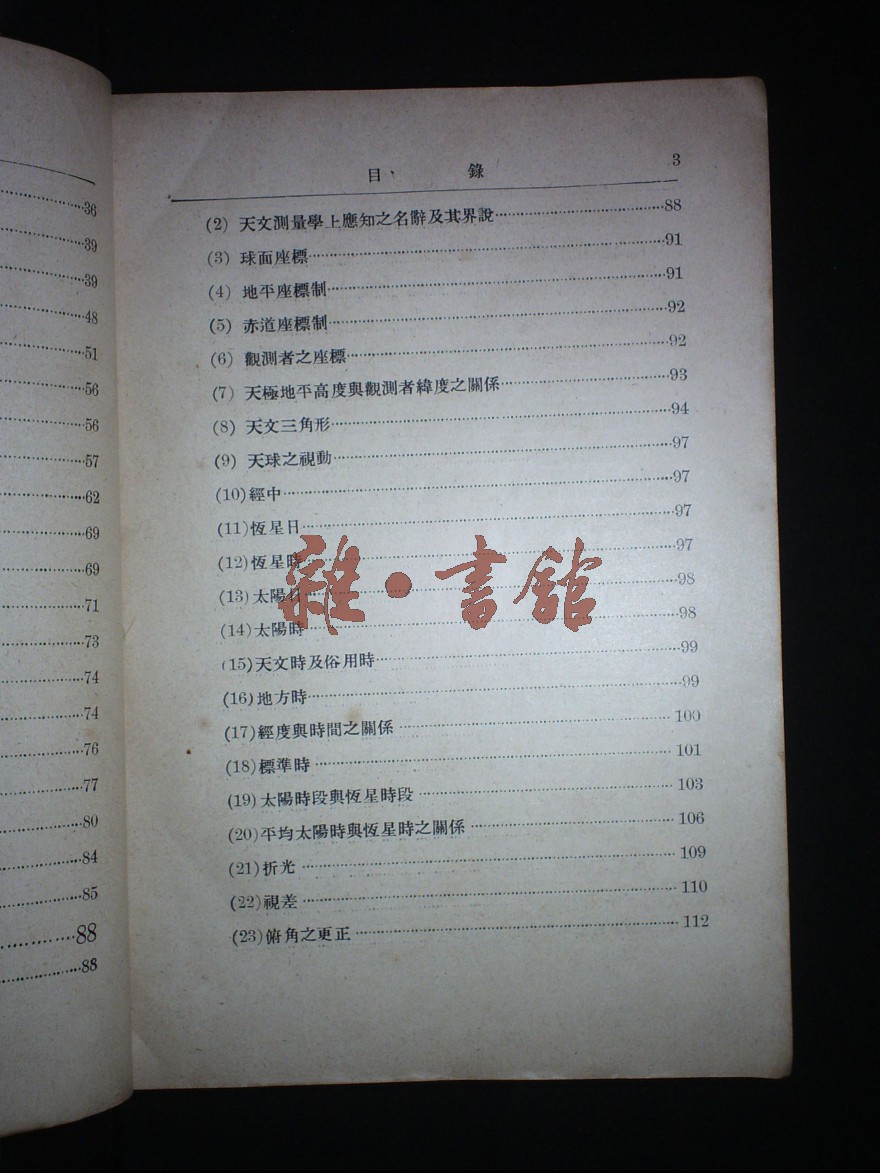 36
39
39
48
51
56
56
57
62
69
69
71
73
74
74
76
77
80
84
85
88
88
目錄 3
(2) 天文測量學上應知之名辭及其界說 88
(3) 球面座標 91
(4) 地平座標制 91
(5) 赤道座標制 92
(6) 觀測者之座標 92
(7) 天極地平高度與觀測者緯度之關係 93
(8) 天文三角形 94
(9) 天球之視動 97
(10)經中 97
(11)恆星日 97
(12)恆星時 97
(13)太陽日 98
(14)太陽時 98
(15)天文時及俗用時 99
(16)地方時 99
(17)經度與時間之關係 100
(18)標準時 101
(19)太陽時段與恆星時段 103
(20)平均太陽時與恆星時之關係 106
(21)折光 109
(22)視差 110
(23)俯角之更正 112
雜·書館